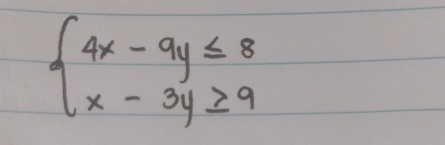 4x - 9y ≤ 8
x - 3y ≥ 9